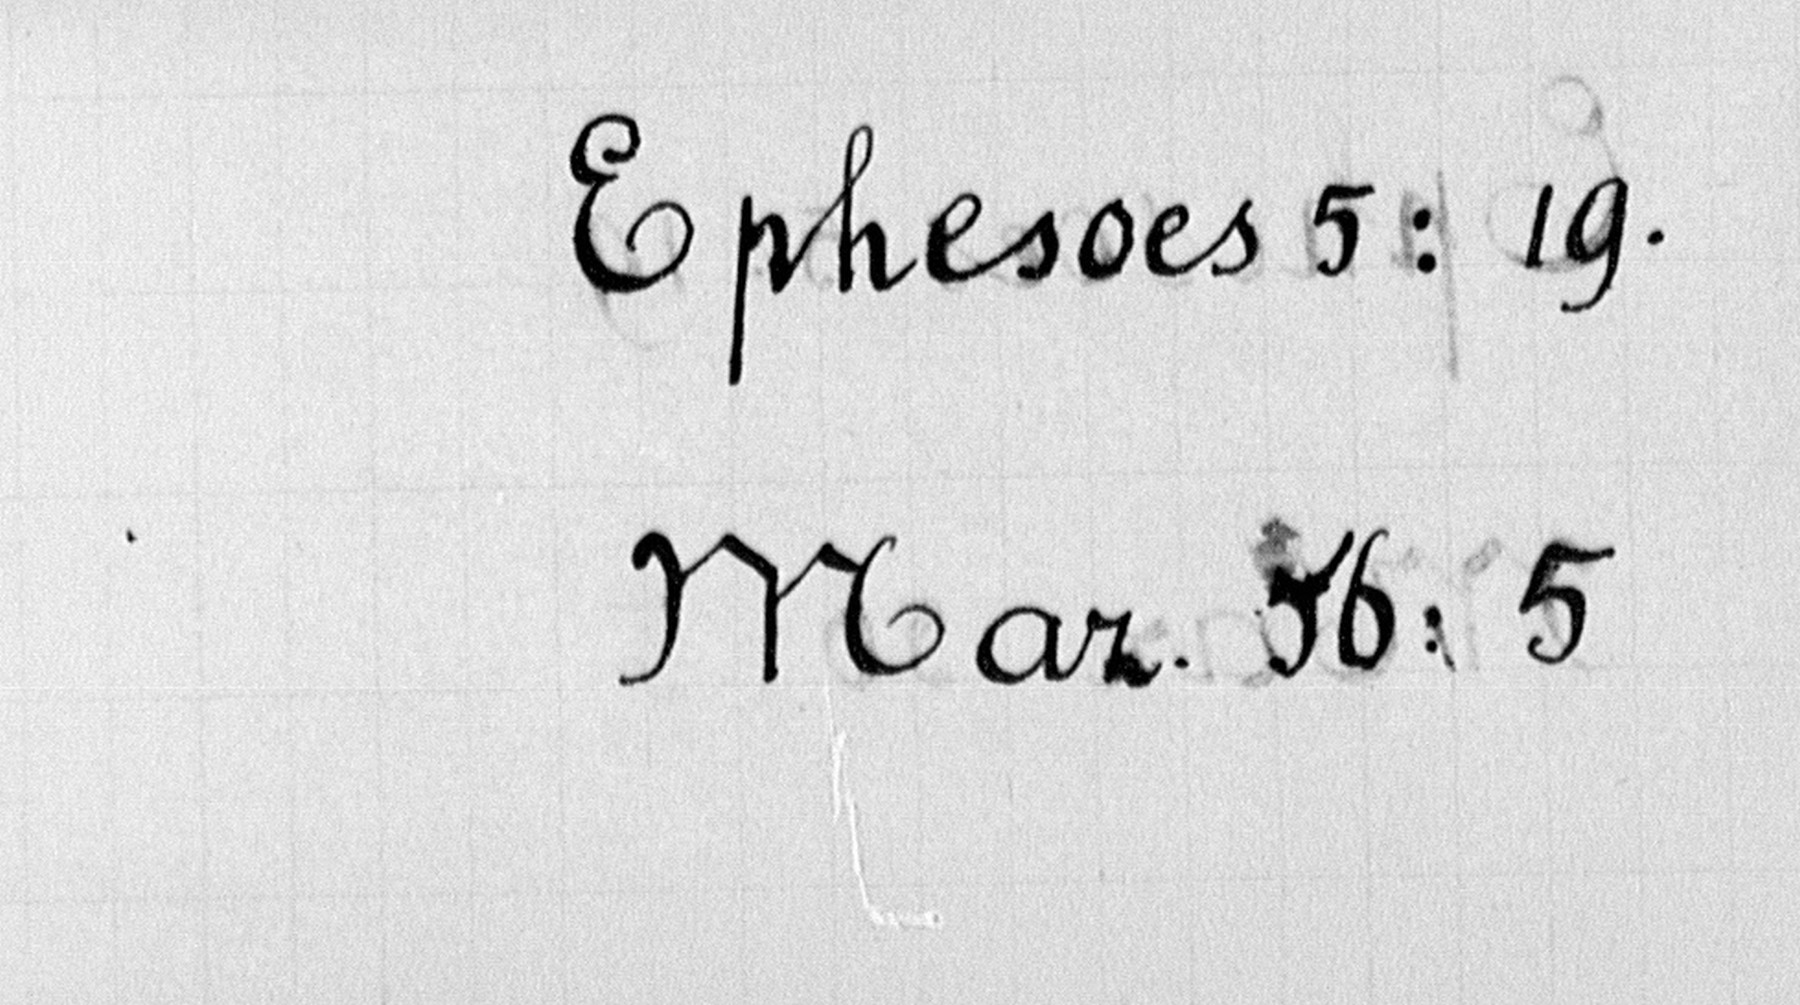 Ephesoes 5: 19.
Mar. 16: 5